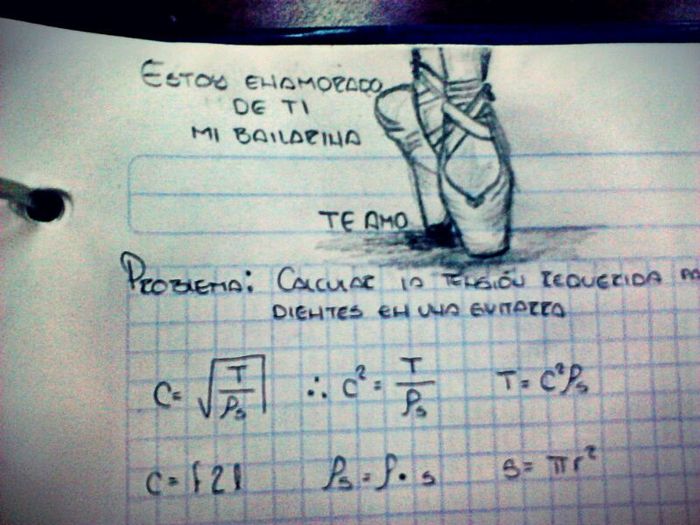 Estoy enamorado
de ti
mi bailarina
Te amo
Problema: Calcular la tensión requerida
dientes en una guitarra
C = √(T/ρs) ∴ c² = T/ρs T = c²ρs
ρs = ρ · s s = πr²